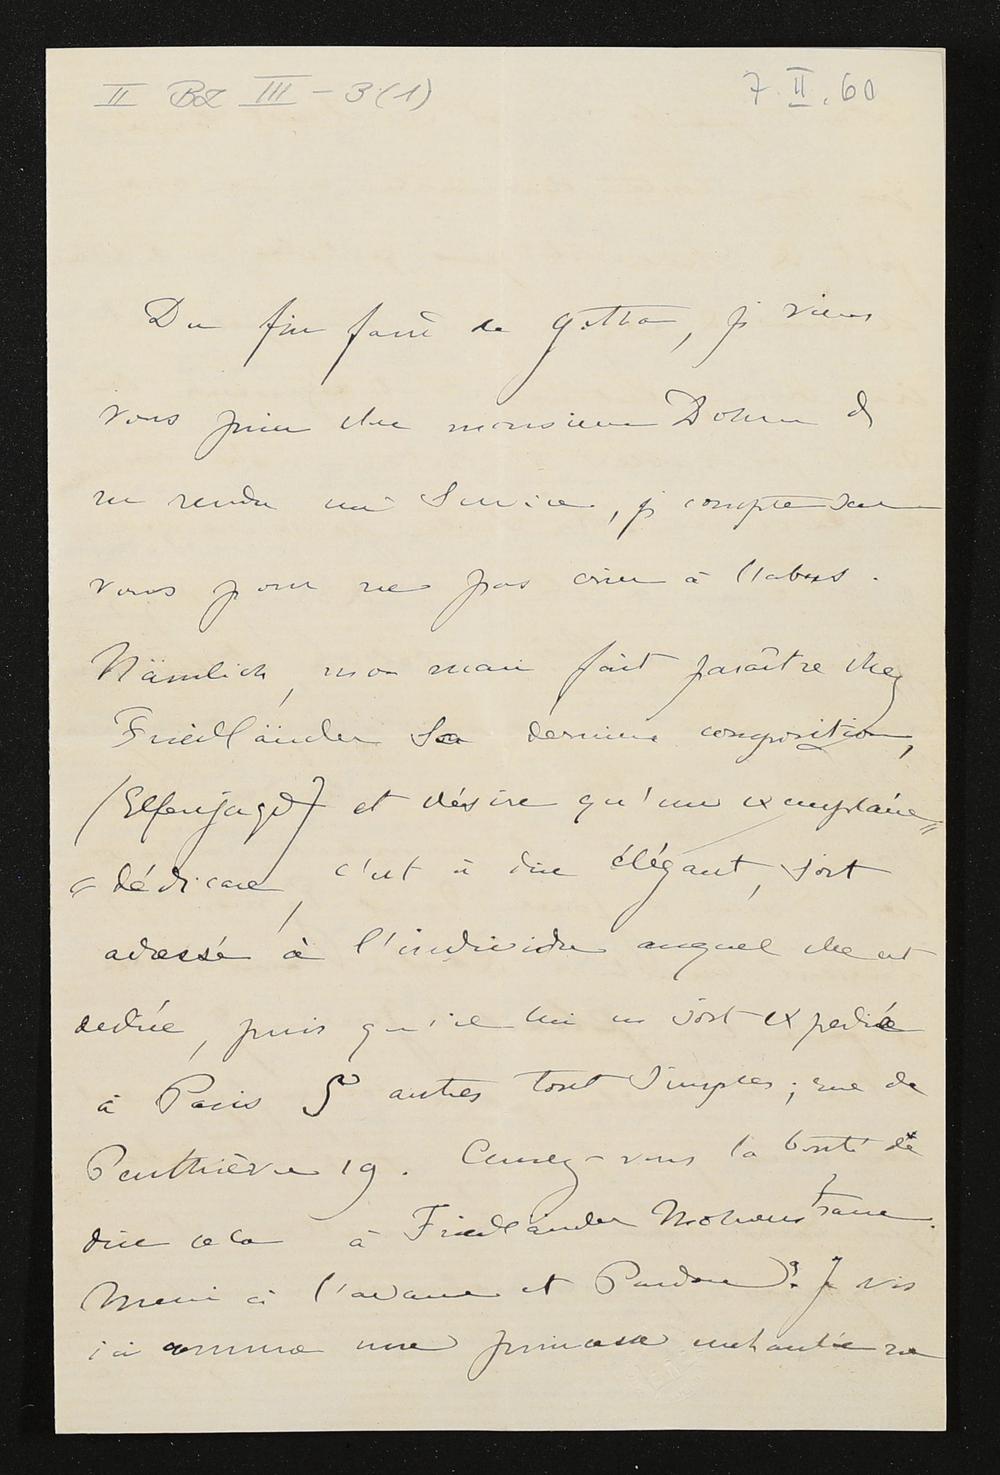 II BZ III – 3(1)
7. II. 60
Du fin fond de Gotha, je viens
vous prier cher monsieur Dohrn de
me rendre un Service, je compte sur
vous pour ne pas crier à l'abus.
Nämlich, mon mari fait paraître chez
Friedländer Sa dernière composition,
(Elfenjagd) et désire qu'un exemplaire
dédicace, c'est à dire élégant, soit
adressé à l'individu auquel elle est
dediée, puis qu'il lui en soit expedié
à Paris 5 autres tout Simples; rue de
Penthièvre 19. Aurez-vous la bonté de
dire cela à Friedländer Mohrenstrasse.
Merci à l'avance et Pardon? Je vis
ici comme une princesse enchantée ne